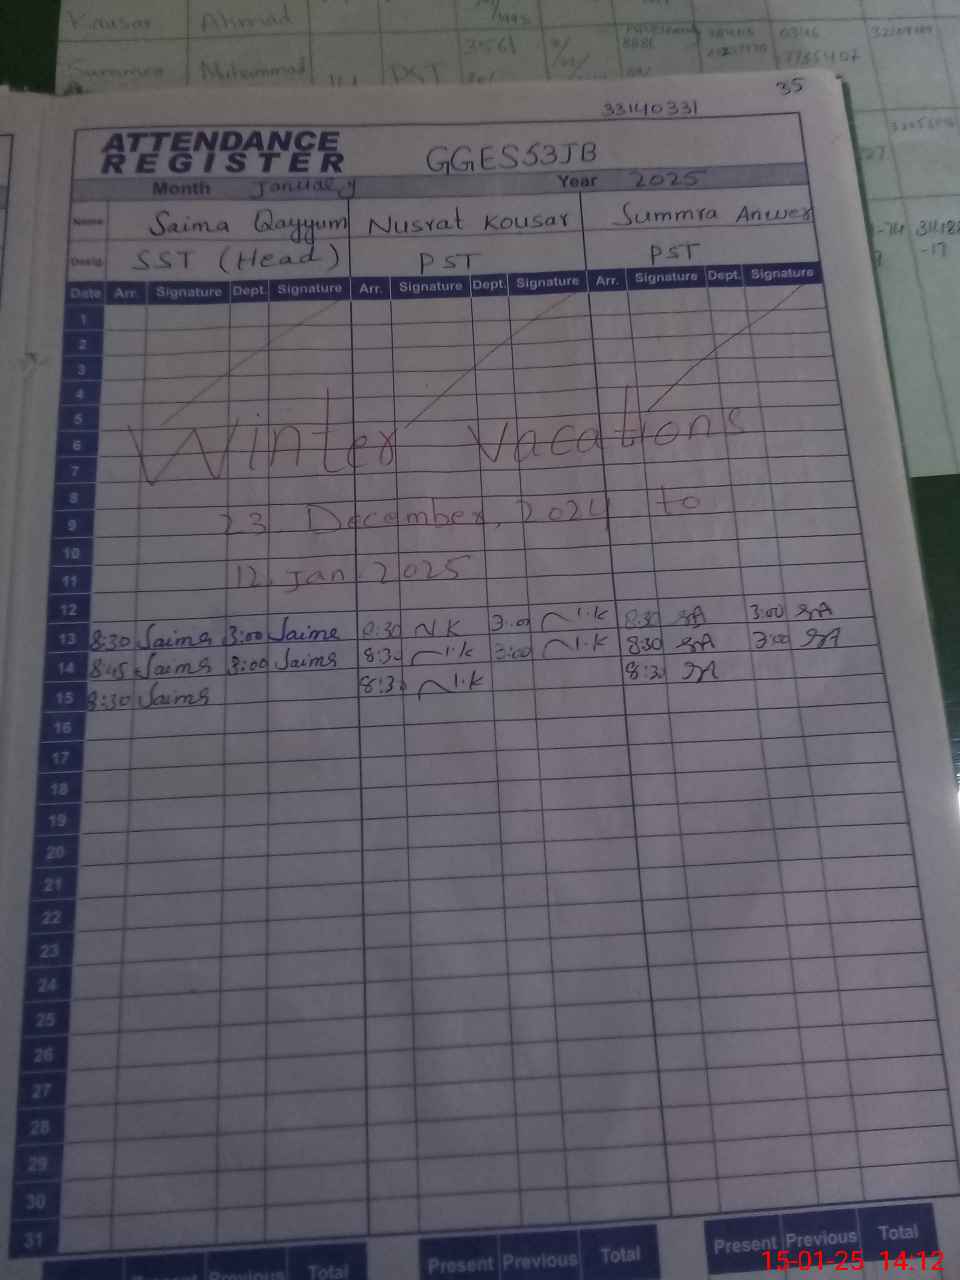 Kausar Ahmad
3561 8886 0346 32204
Summra Muhammad PST 7735407
35
33140331
ATTENDANCE
REGISTER
GGES53JB
Month January Year 2025
Name Saima Qayyum Nusrat Kousar Summra Anwer
Desig. SST (Head) PST PST
Date Arr. Signature Dept. Signature Arr. Signature Dept. Signature Arr. Signature Dept. Signature
1
2
3
4
5
6 Winter Vacations
7
8
9 23 December, 2024 to
10
11 12 Jan 2025
12
13 8:30 Saima 3:00 Saima 8:30 N K 3:00 N.K 8:30 SA 3:00 SA
14 8:45 Saima 3:00 Saima 8:30 N.K 3:00 N.K 8:30 SA 3:00 SA
15 8:30 Saima 8:30 N.K 8:30 SA
16
17
18
19
20
21
22
23
24
25
26
27
28
29
30
31
Present Previous Total Present Previous Total Present Previous Total
15-01-25 14:12